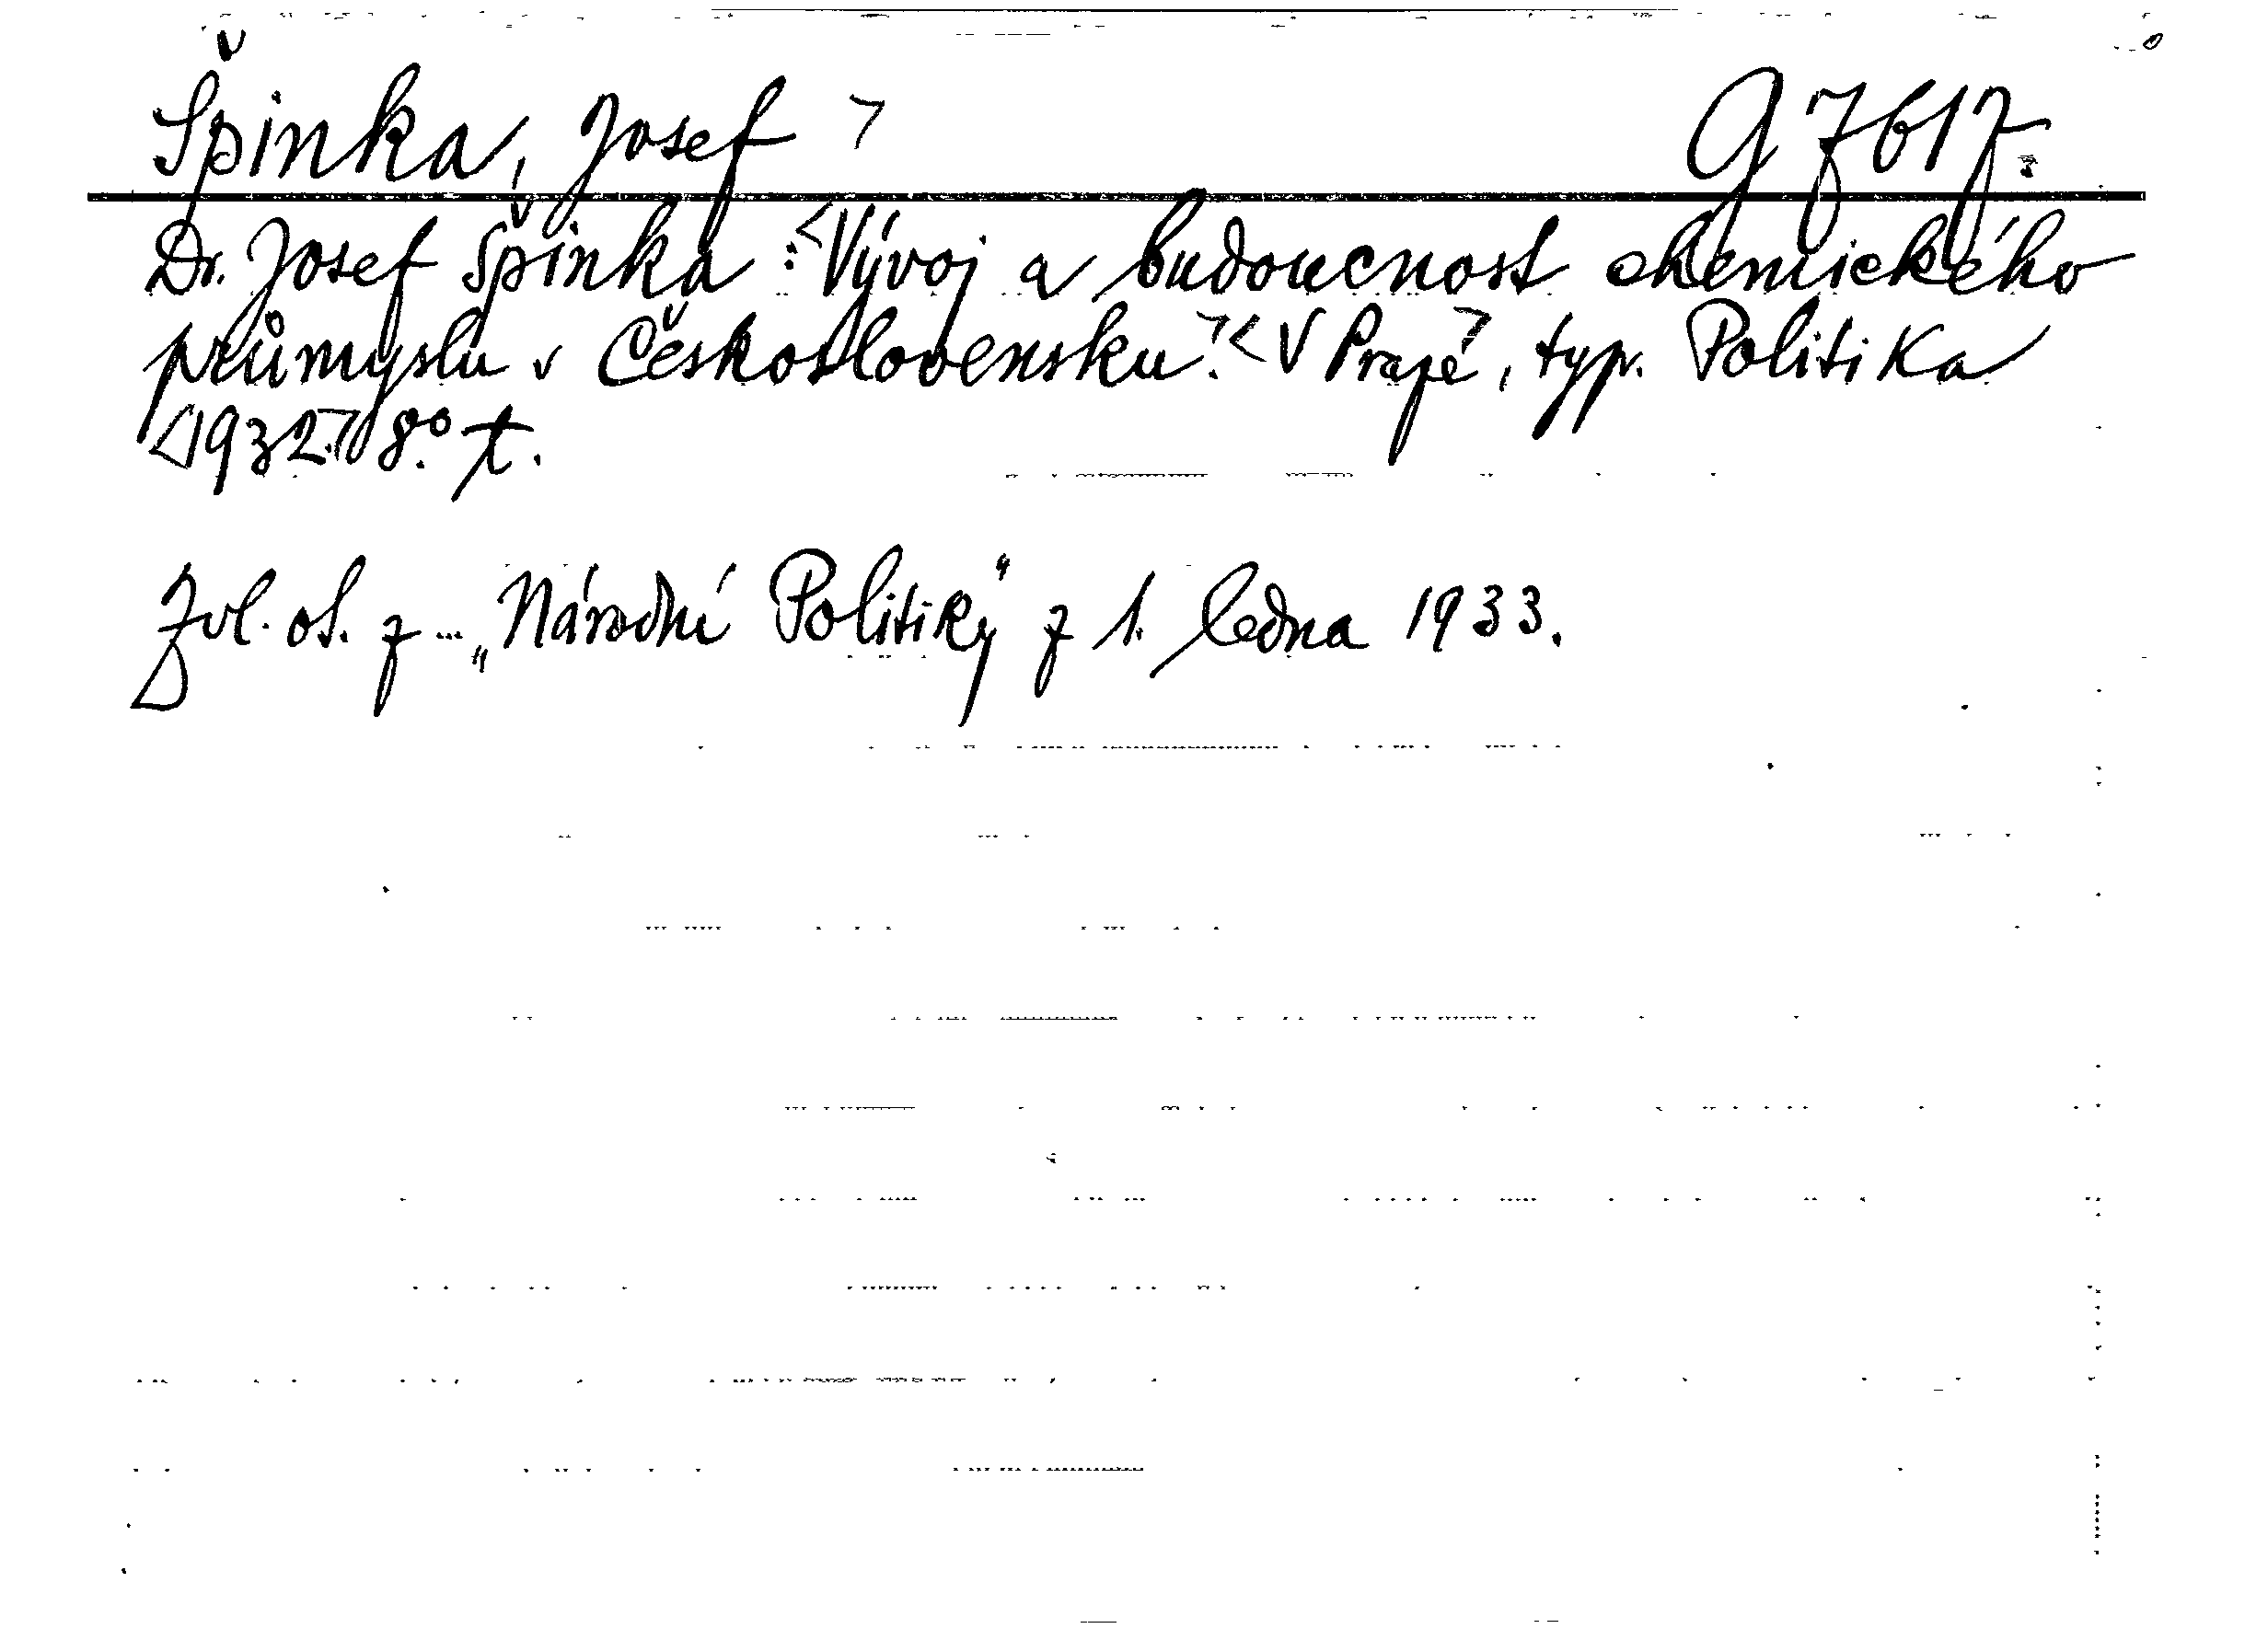 Špinka, Josef > G 7617.
Dr. Josef Špinka : <Vývoj a budoucnost chemického
průmyslu v Československu.> < V Praze >, typ. Politika
<1932.> 8°. t.
Zvl. ot. z ... „Národní Politiky" z 1. ledna 1933.